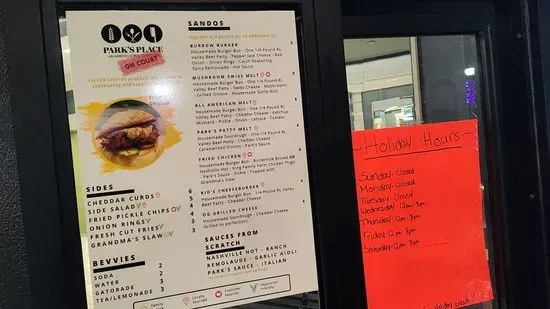 PARK'S PLACE
ON COURT
Locally sources products
SIDES
CHEDDAR CURDS 6
SIDE SALAD 5
FRIED PICKLE CHIPS
ONION RINGS
FRESH CUT FRIES
GRANDMA'S SLAW
BEVVIES
SODA 2
WATER 2
GATORADE 3
TEA/LEMONADE 2
SANDOS
BURROW BURGER
Housemade Burger Bun - One 1/4 Pound RL
Valley Beef Patty - Pepper Jack Cheese - Red
Onion - Onion Rings - Cajun Seasoning
Spicy Remoulade - Hot Sauce
MUSHROOM SWISS MELT
Housemade Burger Bun - One 1/4 Pound RL
Valley Beef Patty - Swiss Cheese - Mushrooms
- Grilled Onions - Housemade Garlic Aioli
ALL AMERICAN MELT
Housemade Burger Bun - One 1/4 Pound RL
Valley Beef Patty - Cheddar Cheese - Ketchup
Mustard - Pickle - Onion - Lettuce - Tomato
PARK'S PATTY MELT
Housemade Sourdough - One 1/4 Pound RL
Valley Beef Patty - Cheddar Cheese
Caramelized Onions - Park's Sauce
FRIED CHICKEN
Housemade Burger Bun - Buttermilk Brined OR
Nashville Hot - King Family Farm Chicken Thigh
- Park's Sauce - Pickle - Topped with
Grandma's Slaw
KID'S CHEESEBURGER
Housemade Burger Bun - One 1/4 Pound RL Valley
Beef Patty - Cheddar Cheese
OG GRILLED CHEESE
Housemade Sourdough - Cheddar Cheese
Grilled to perfection!
SAUCES FROM
SCRATCH
NASHVILLE HOT - RANCH
REMOLAUDE - GARLIC AIOLI
PARK'S SAUCE - ITALIAN
Locally
Sourced
Customer
Favorites
Vegetarian
Friendly
Holiday Hours
Sunday- Closed
Monday- Closed
Tuesday- Closed
Wednesday- 12pm - 8pm
Thursday- 12pm - 8pm
Friday- 12pm - 8pm
Saturday- 12pm - 8pm